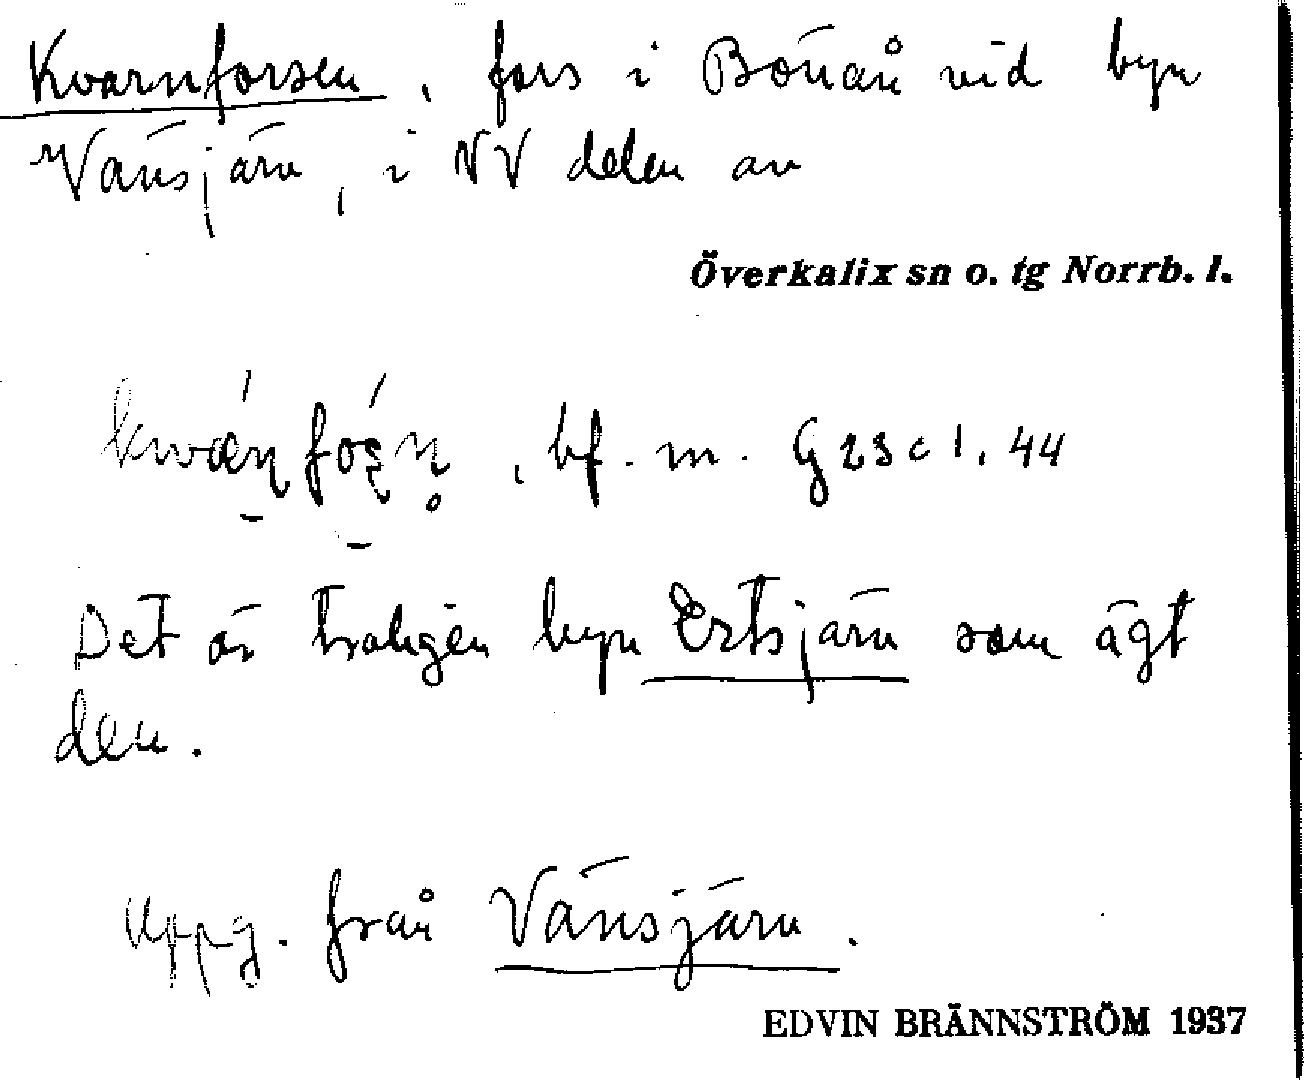 Kvarnforsen, fors i Bönån vid byn
Vänsjärv, i NV delen av
Överkalix sn o. tg Norrb. l.
, bf. m. G 23 c 1. 44
Det är troligen byn Ertsjärv som ägt
den.
Uppg. från Vänsjärv.
EDVIN BRÄNNSTRÖM 1937